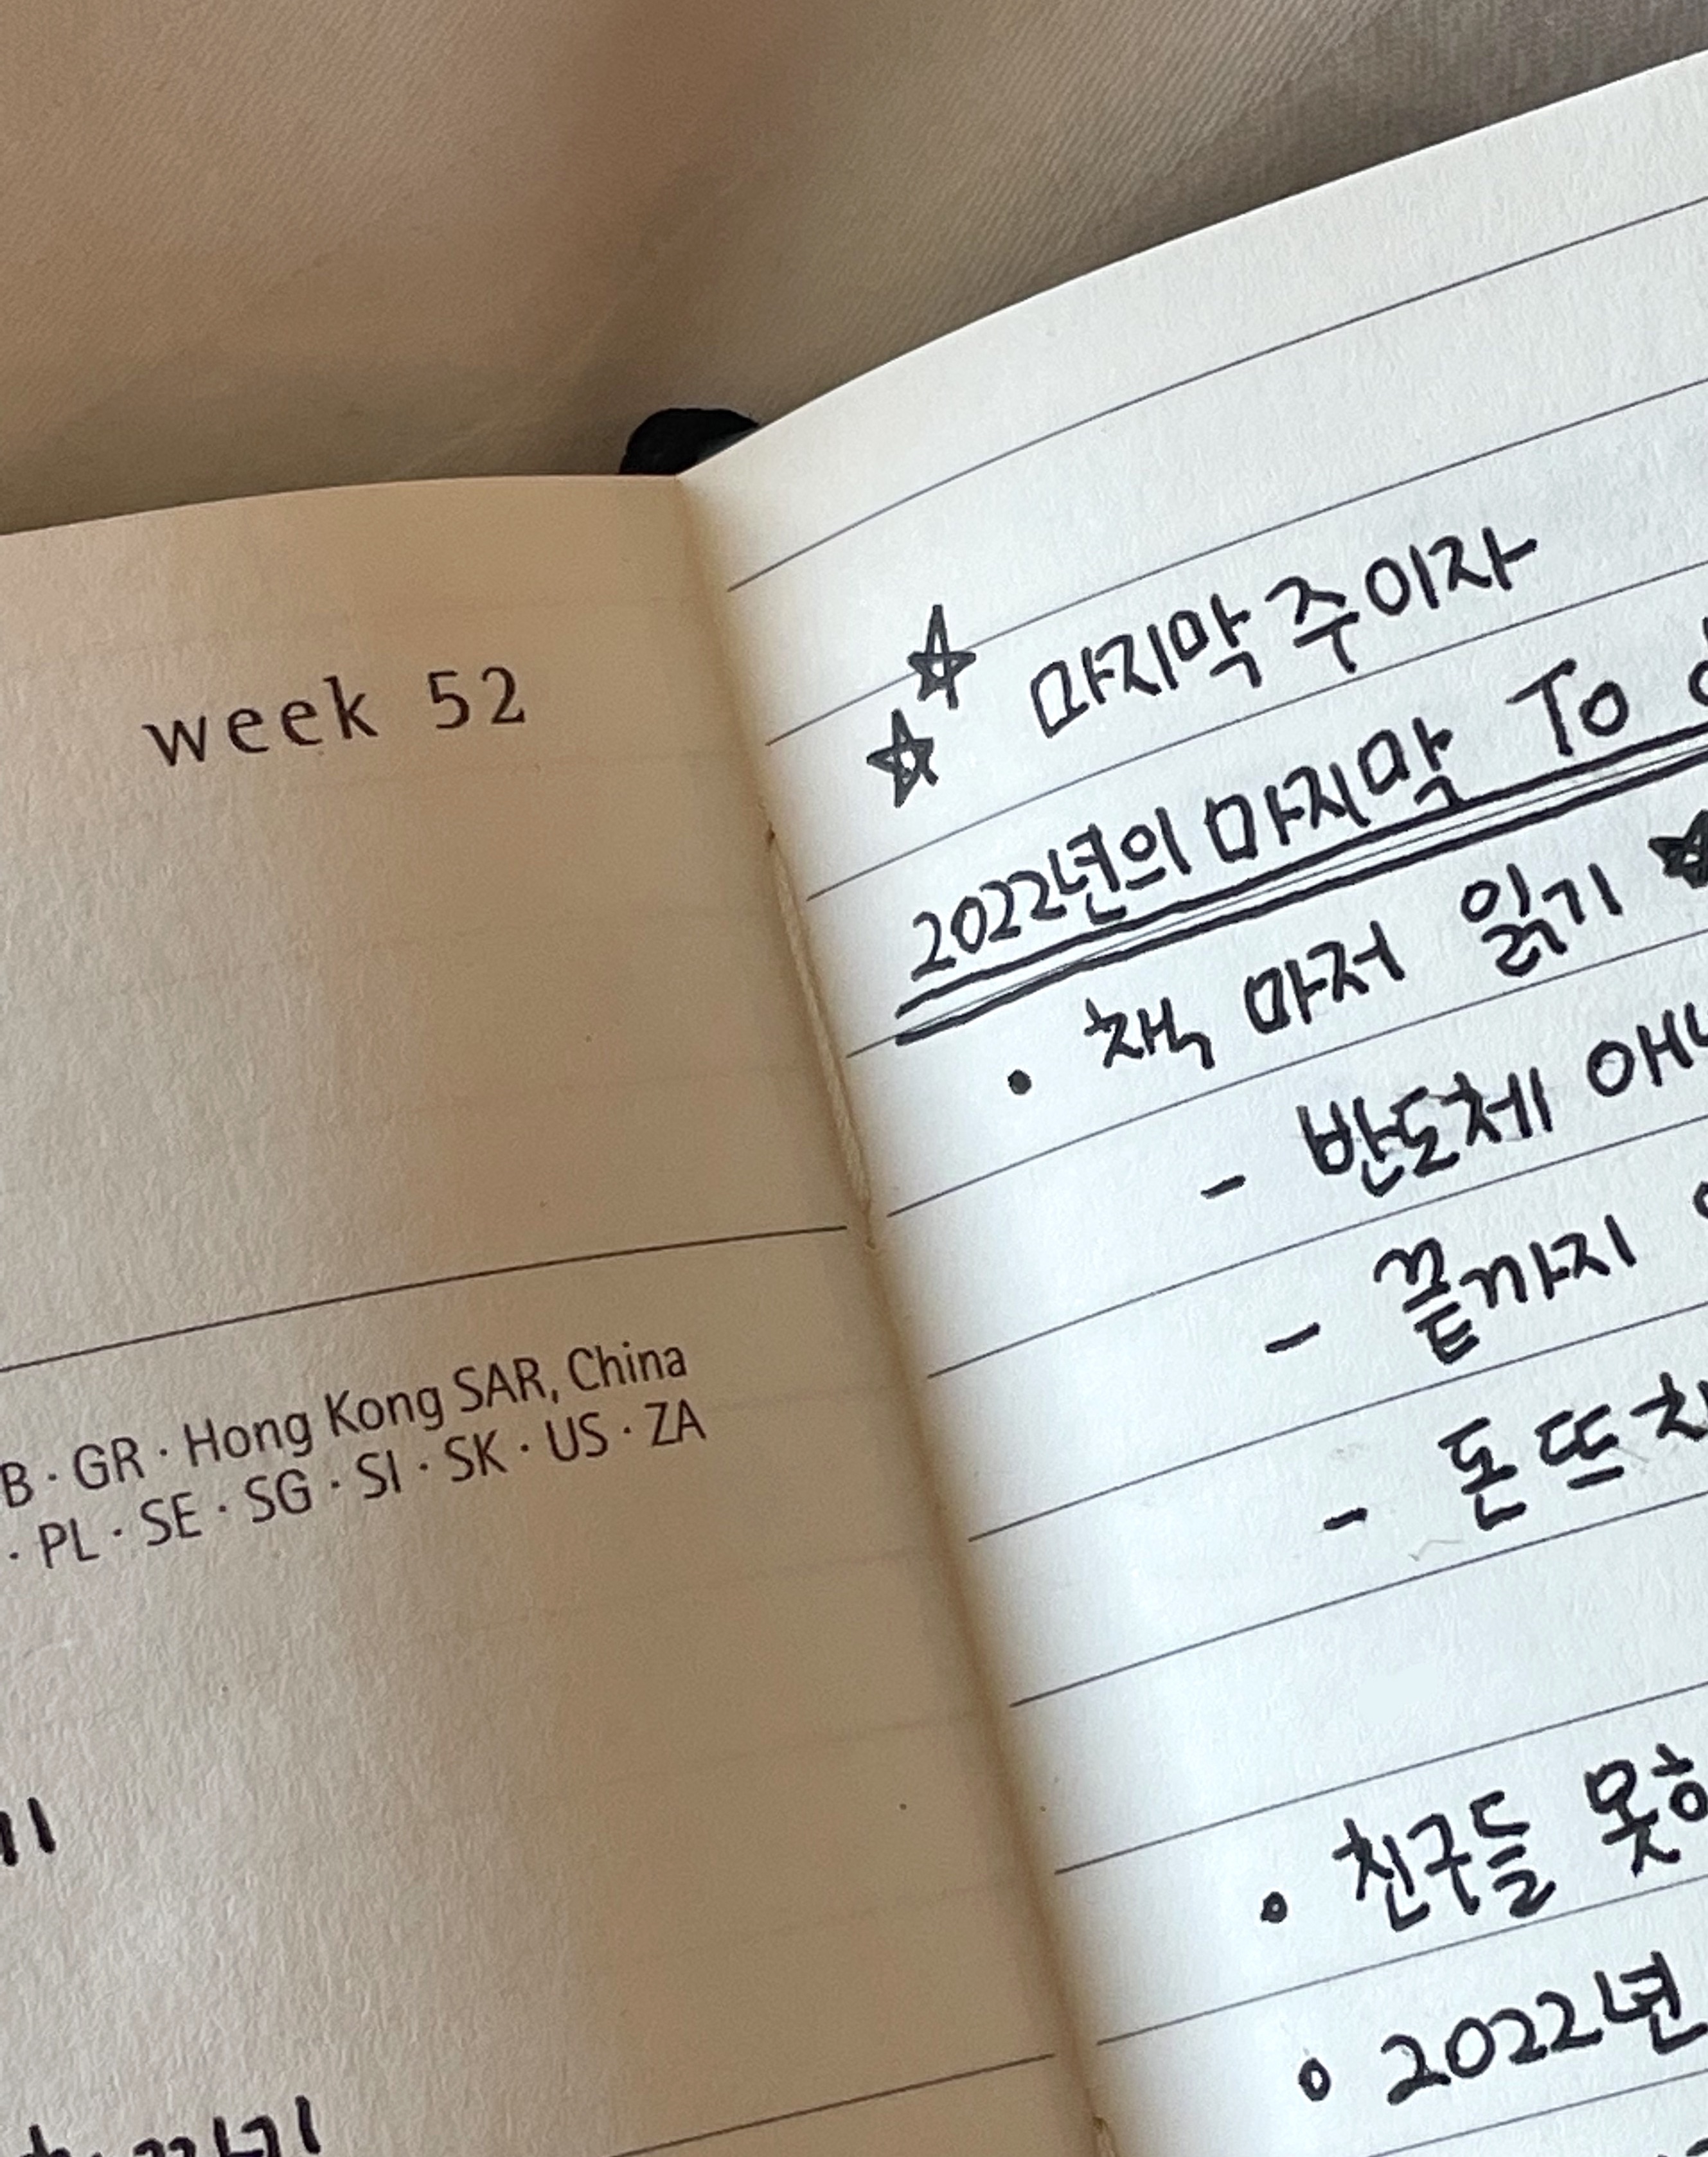 week 52
GR · Hong Kong SAR, China
· PL · SE · SG · SI · SK · US · ZA
마지막 주이자
2022년의 마지막 To
• 책 마저 읽기
- 반도체
- 끝까지
- 돈 뜨
• 친구들
• 2022년